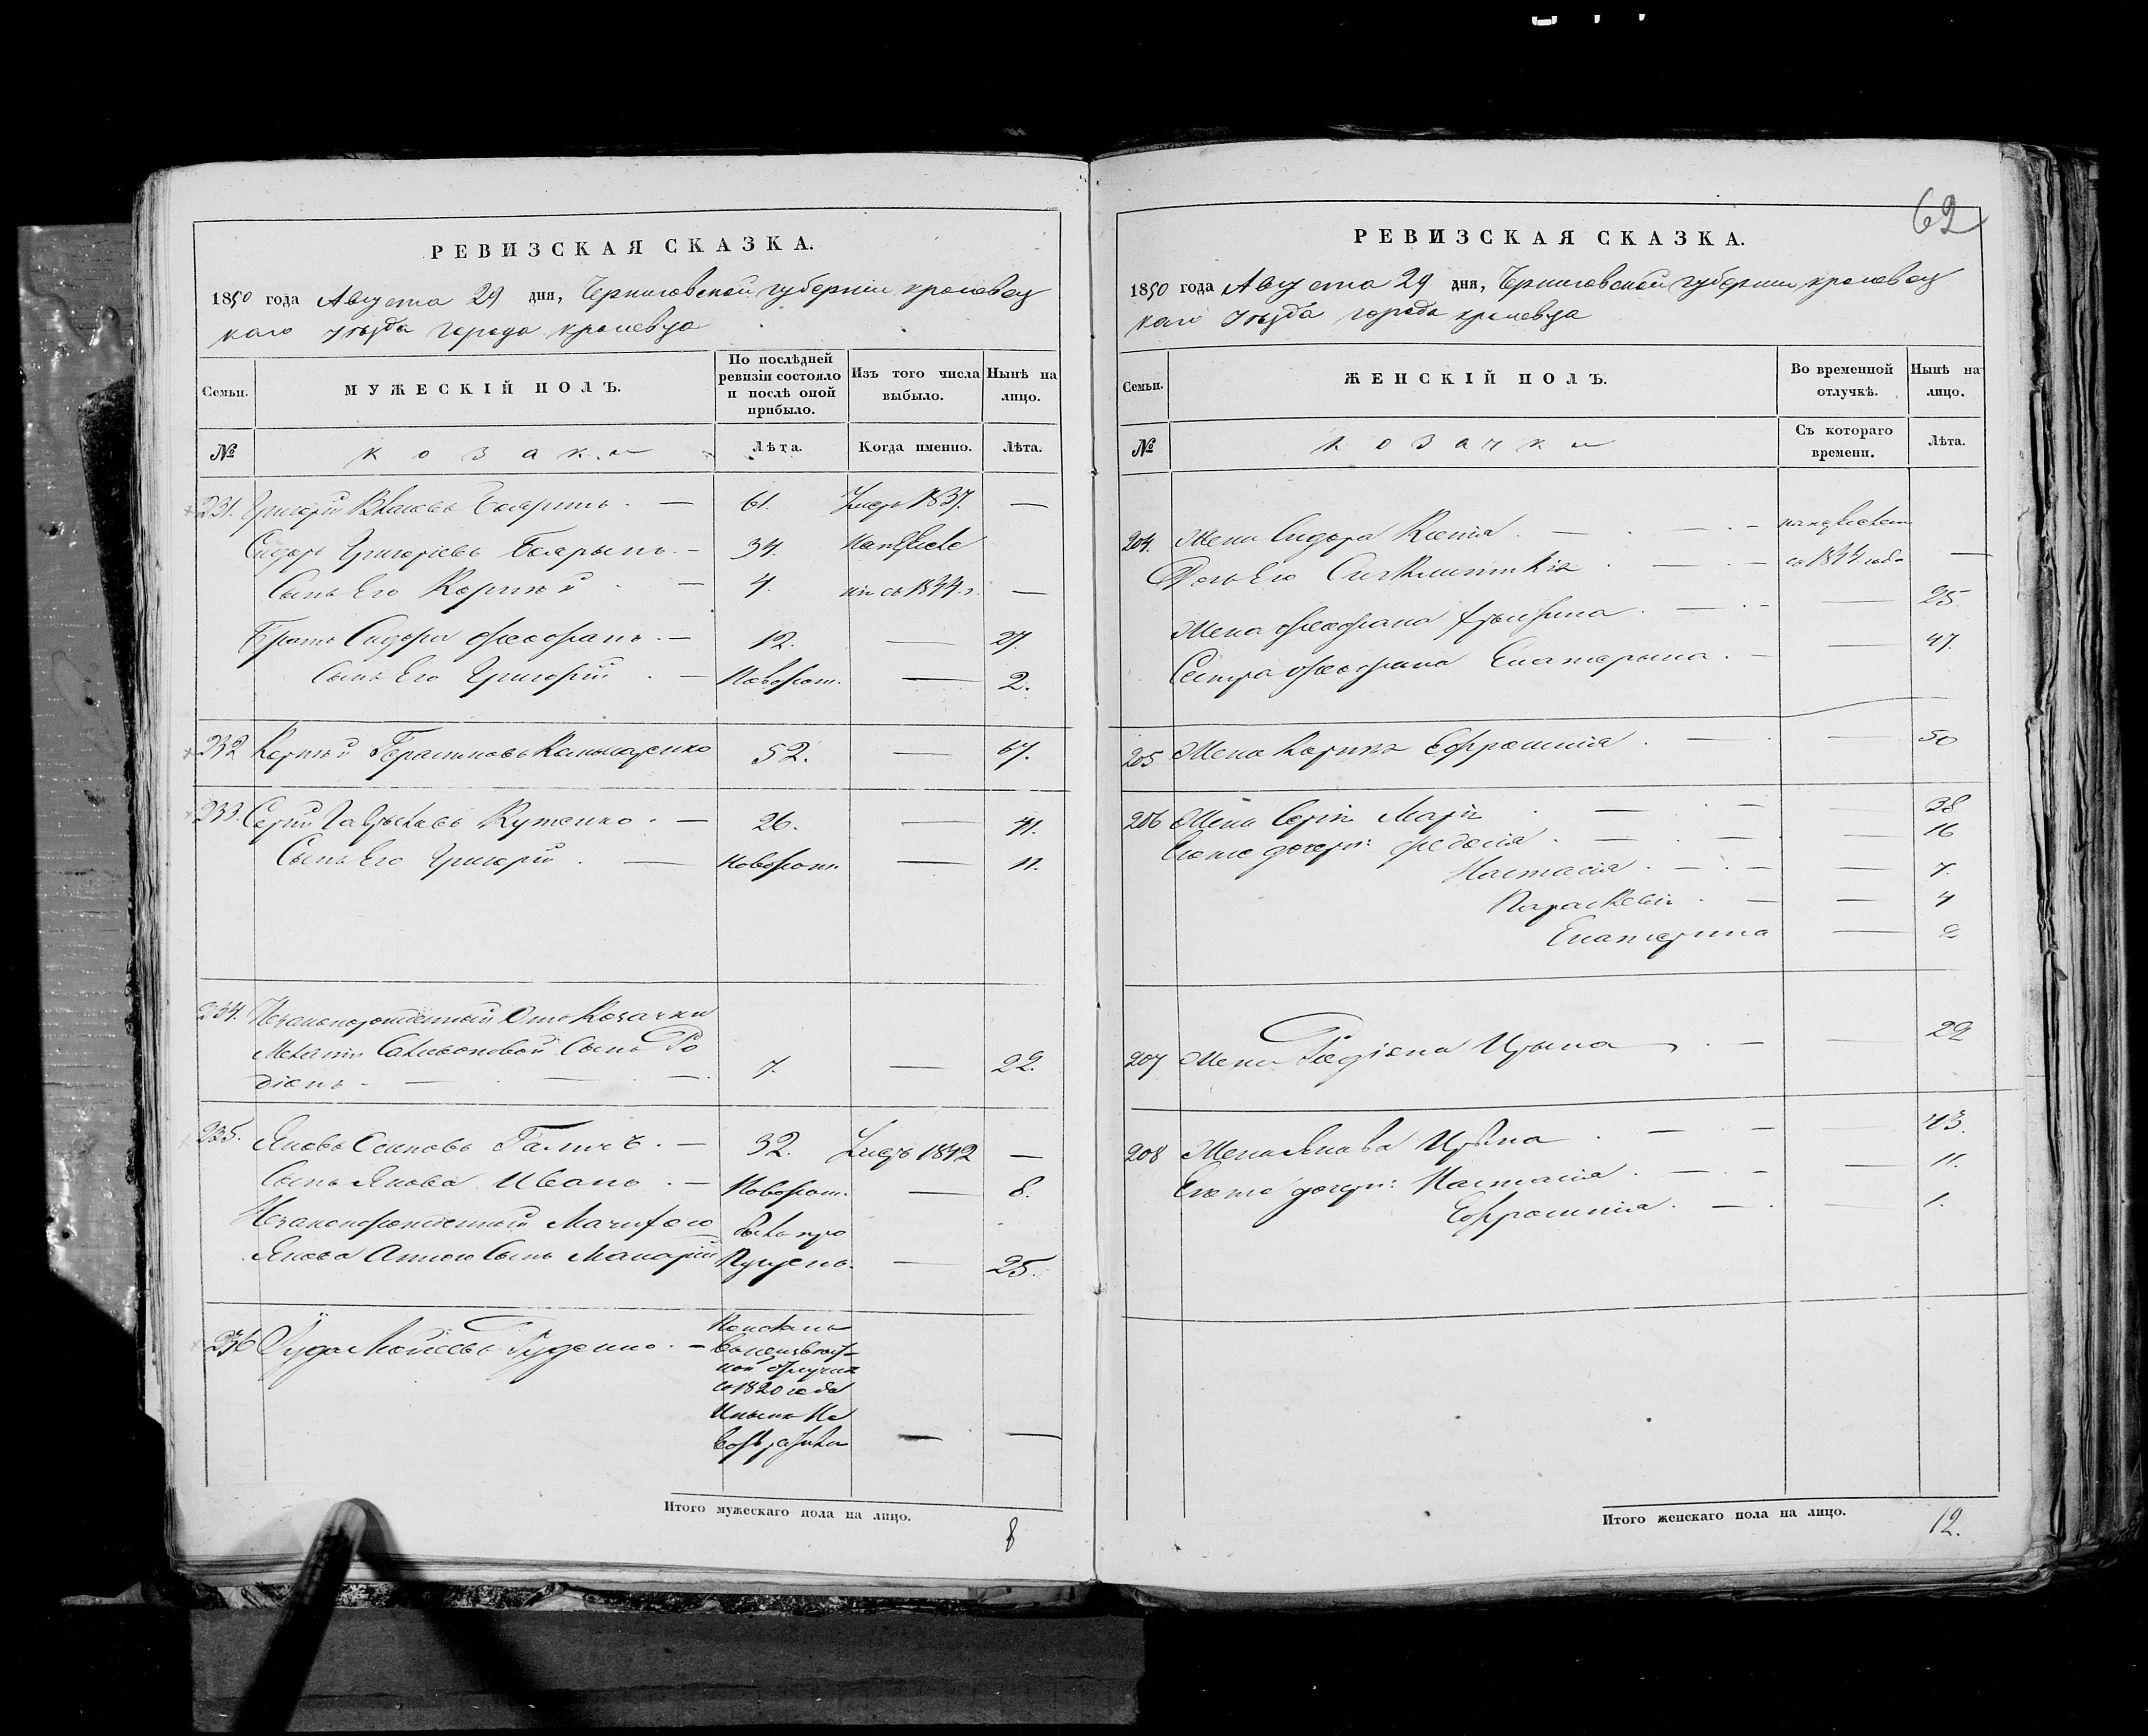 62
РЕВИЗСКАЯ СКАЗКА.
1850 года Августа 29 дня, Черниговской губернiи кролевец
каго уѣзда города кролевца
Семьи.
МУЖЕСКIЙ ПОЛЪ.
По послѣдней ревизiи состояло и послѣ оной прибыло.
Изъ того числа выбыло.
Нынѣ на лицо.
№
козаки
Лѣта.
Когда именно.
Лѣта.
231. Григорiй Бояринъ. — 61. Умеръ 1837. —
Сидоръ Григорiевъ Боярынъ. — 34
Сынъ Его Корнѣй — 4. съ 1844. г. —
Братъ Сидора — 12. — 27.
Сынъ Его Григорiй — Новорож. — 2.
232 Корнѣй 52. — 67.
233. Сергiй Куженко — 26. — 41.
Сынъ Его Григорiй — Новорож. — 11.
234. Незаконорожденный Отъ Козачки
Сынъ Ро
дiонъ — 7. — 22.
235. Яковъ Осиповъ Галичъ. — 32. Умеръ 1842 —
Сынъ Якова Иванъ — Новорож. — 8.
Незаконорожденный
Якова Сынъ Макарiй пущенъ. — 25.
236 Руденко. —
съ 1820 года
— —
Итого мужескаго пола на лицо. 8
РЕВИЗСКАЯ СКАЗКА.
1850 года Августа 29 дня, Черниговской губернiи кролевец
каго уѣзда города кролевца
Семьи.
ЖЕНСКIЙ ПОЛЪ.
Во временной отлучкѣ.
Нынѣ на лицо.
№
козачки
Съ котораго времени.
Лѣта.
204. Жена Сидора Ксенiя —
Дочь Его съ 1844 года —
Жена — 25.
Сестра Екатерына — 47.
205 Жена Корнѣя Ефросинiя — 50
206 Жена Сергiя Марiя — 38
Его же дочери: Федосiя — 16
Настасiя — 7.
Параскевiя — 4
Екатерина — 2
207 Жена Родiона Ирына — 22
208 Жена Якова Ирына — 43.
Его же дочери: Настасiя — 11.
Ефросинiя — 1.
Итого женскаго пола на лицо. 12.